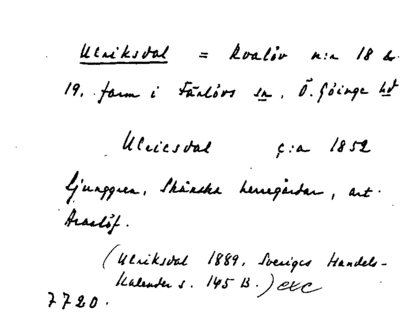 Ulriksdal = Kvalöv n:r 18 &
19, farm i Färlövs sn, Ö. Göinge hd
Ulricsdal c:a 1852
Ljunggren, Skånska herregårdar, art.
Araslöf.
(Ulriksdal 1889, Sveriges Handels-
Kalender s. 145 B.) exc
7720.